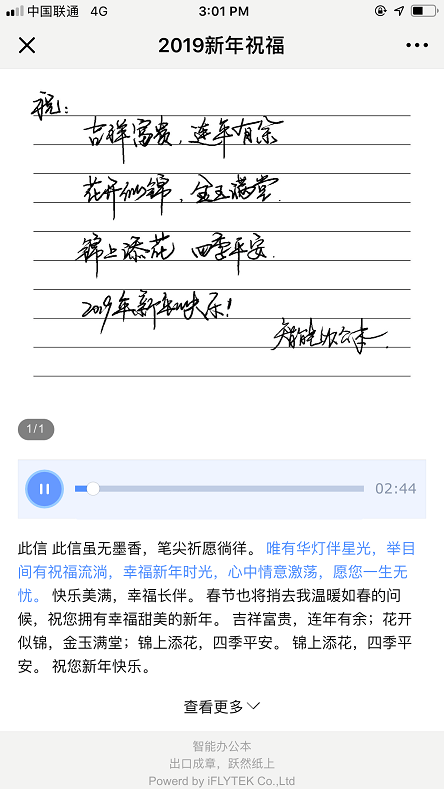 中国联通 4G 3:01 PM
2019新年祝福
祝：
吉祥富贵，连年有余
花开似锦，金玉满堂.
锦上添花 四季平安.
2019年新年快乐！
智能办公本.
1/1
02:44
此信 此信虽无墨香，笔尖祈愿徜徉。 唯有华灯伴星光，举目
间有祝福流淌，幸福新年时光，心中情意激荡，愿您一生无
忧。 快乐美满，幸福长伴。 春节也将捎去我温暖如春的问
候，祝您拥有幸福甜美的新年。 吉祥富贵，连年有余；花开
似锦，金玉满堂；锦上添花，四季平安。 锦上添花，四季平
安。 祝您新年快乐。
查看更多
智能办公本
出口成章，跃然纸上
Powerd by iFLYTEK Co.,Ltd